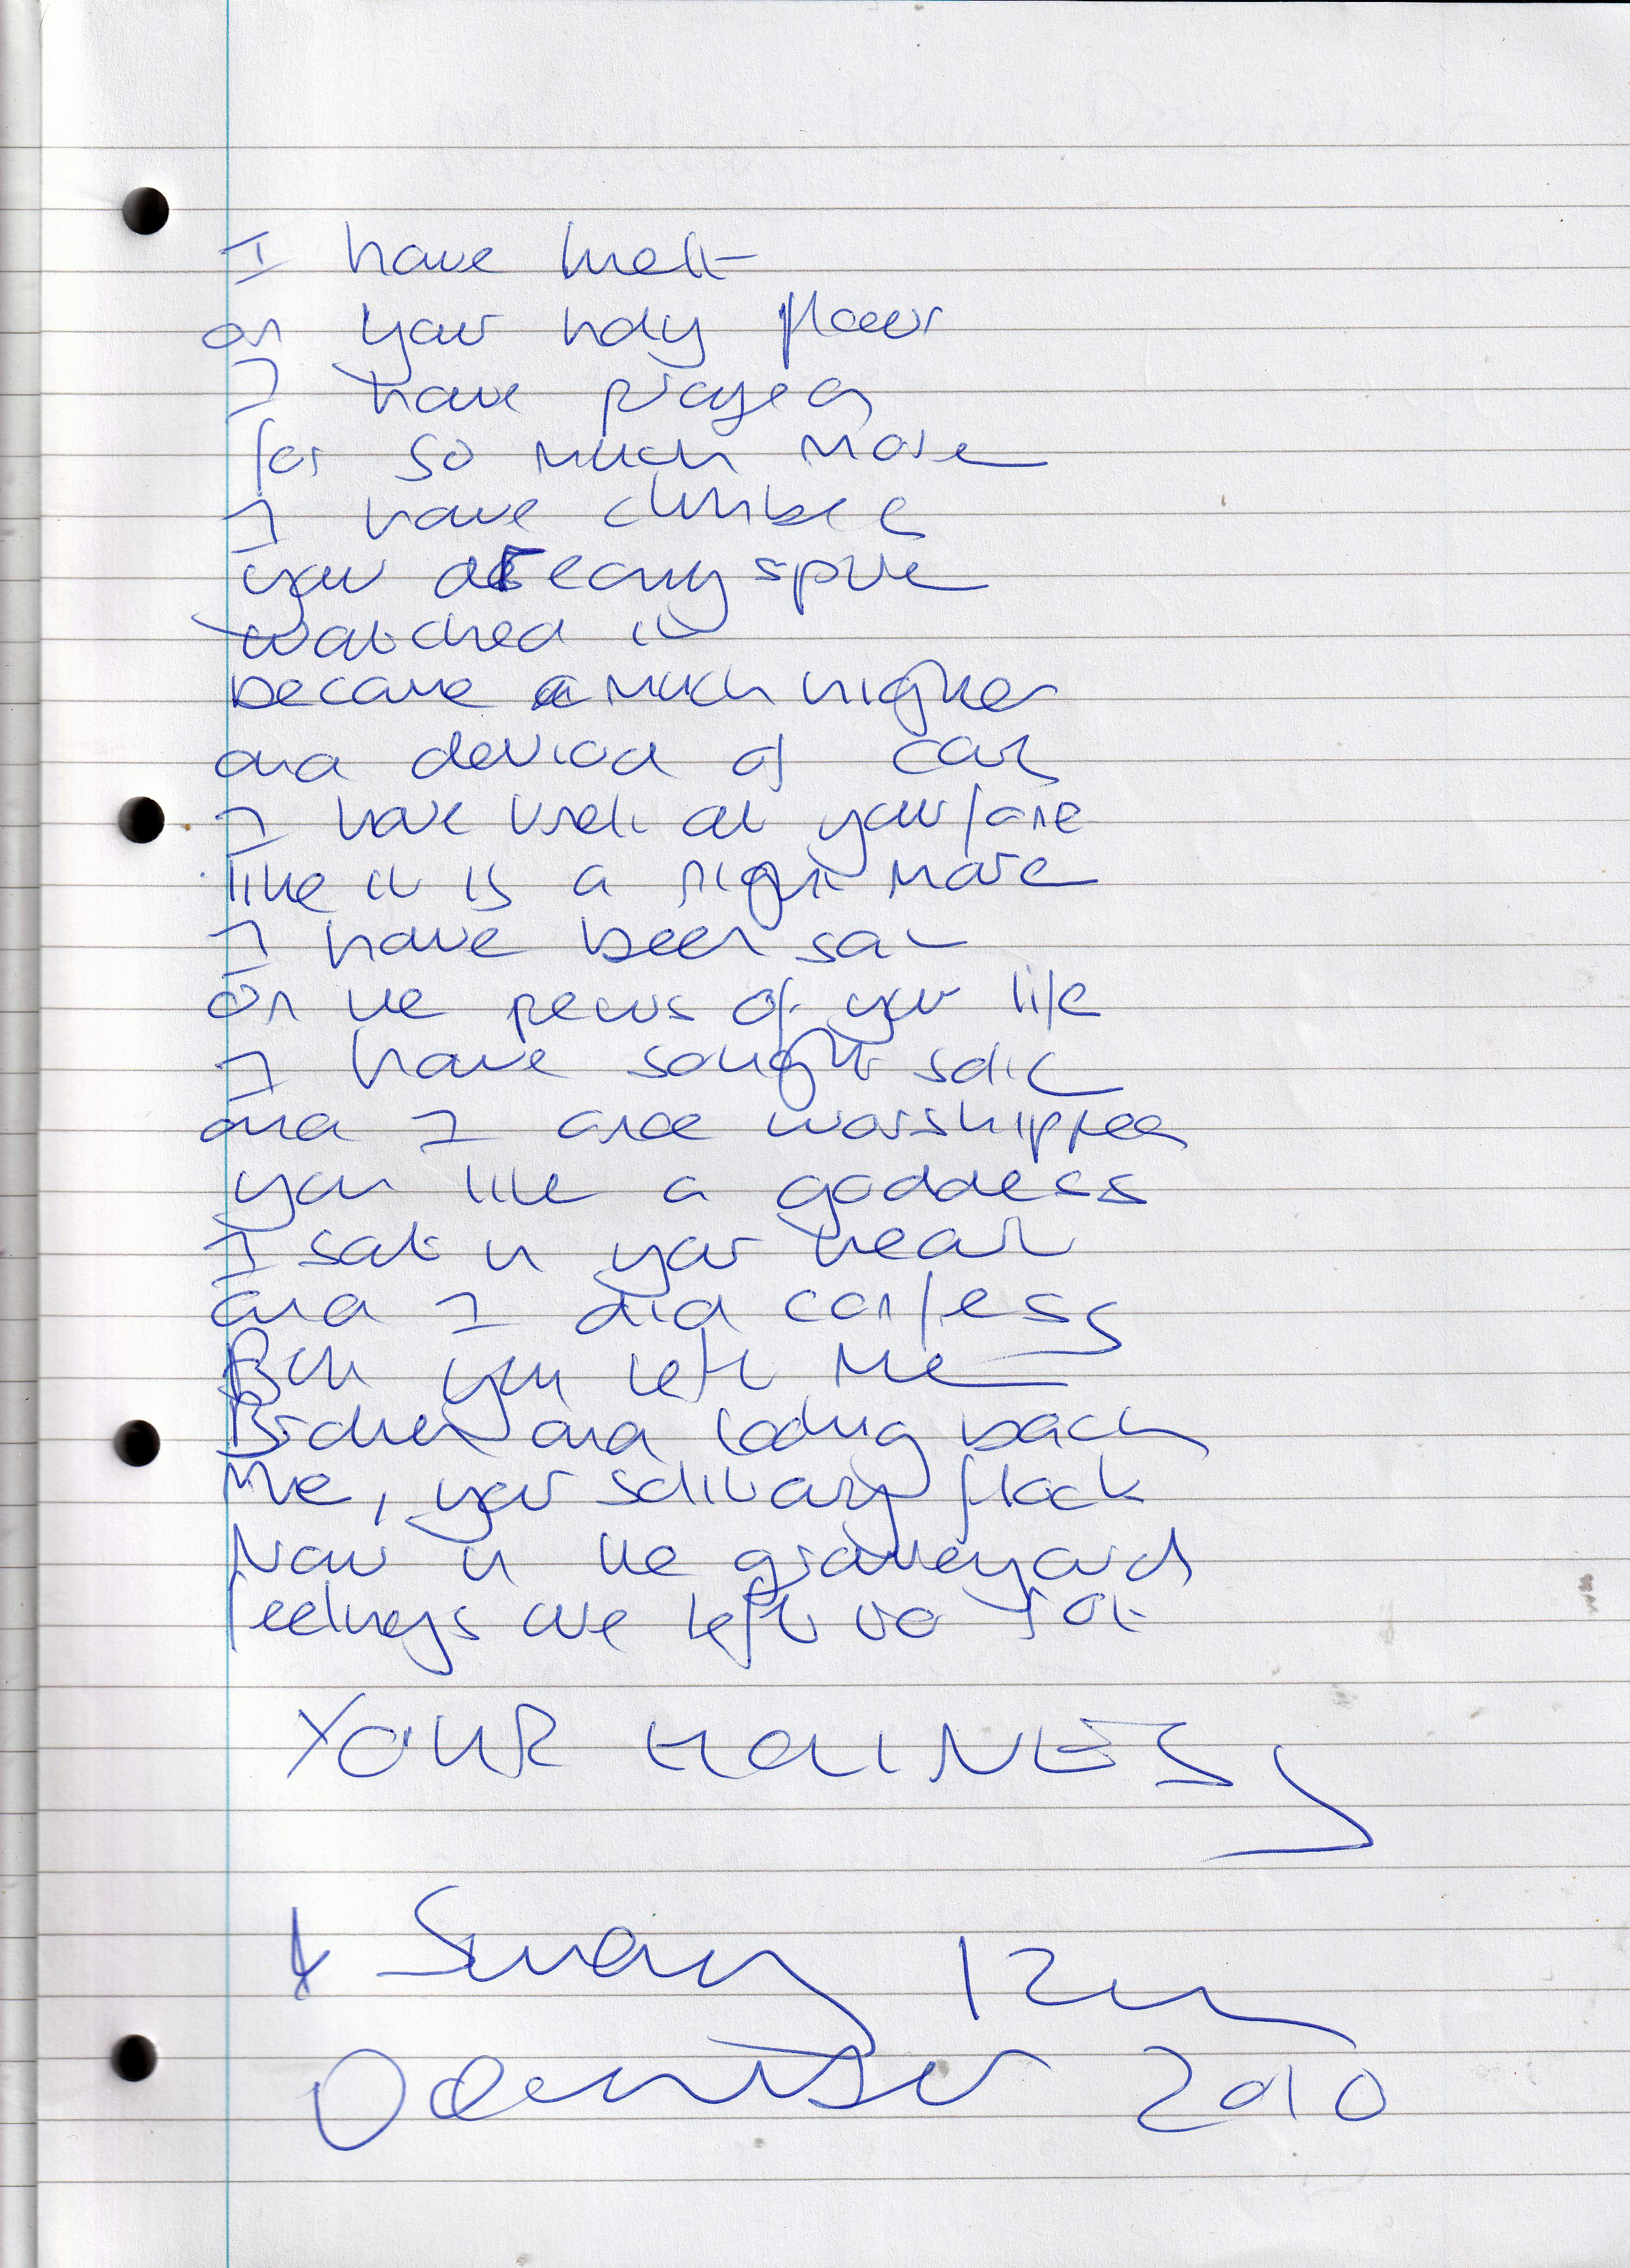 I have knelt
on your holy floor
I have prayed
for so much more
I have climbed
your spire
watched it
become much higher
and devoid of care
I have knelt at your fane
like it is a nightmare
I have been sat
on the pews of your life
I have sought solic
and I have worshipped
you like a goddess
I sat in your heart
and I did confess
But you left me
Broken and looking back
Me, your solitary flock
Now in the graveyard
feelings are left to rot
YOUR HOLINESS
Sunday 12th
December 2010